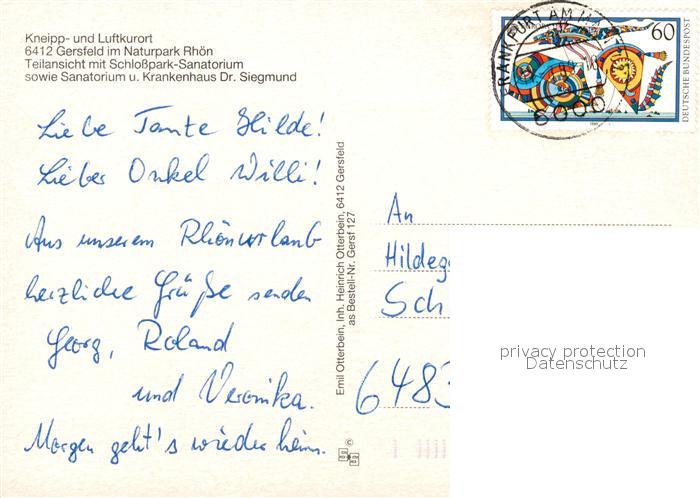 Kneipp- und Luftkurort
6412 Gersfeld im Naturpark Rhön
Teilansicht mit Schloßpark-Sanatorium
sowie Sanatorium u. Krankenhaus Dr. Siegmund
Liebe Tante Hilde!
Lieber Onkel Willi!
Aus unserem Rhönurlaub
herzliche Grüße senden
Georg, Roland
und Veronika.
Morgen geht's wieder heim.
Emil Otterbein, Inh. Heinrich Otterbein, 6412 Gersfeld
as Bestell-Nr. Gersf 127
©
60
DEUTSCHE BUNDESPOST
FRANKFURT AM
6000
An
Hildeg
Sch
6483
privacy protection
Datenschutz